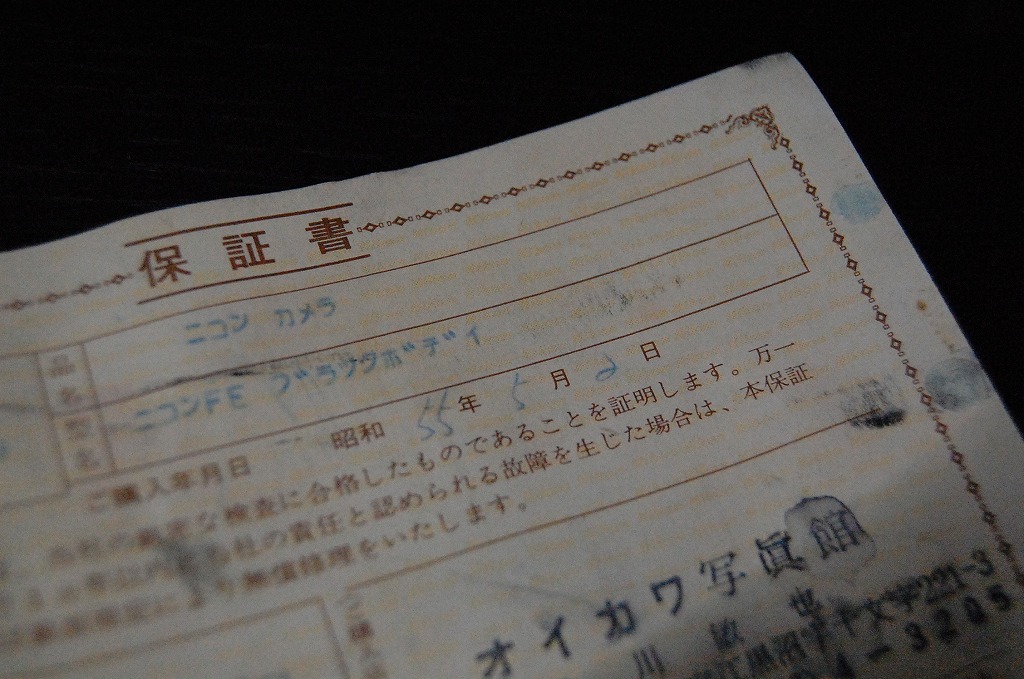 保証書
品名 ニコン カメラ
型名 ニコンFE ブラックボディ
ご購入年月日 昭和 55年 5月 2日
な検査に合格したものであることを証明します。万一
社の責任と認められる故障を生じた場合は、本保証
無償修理をいたします。
オイカワ写真館
川 敏
字十文字221-3
4-3205